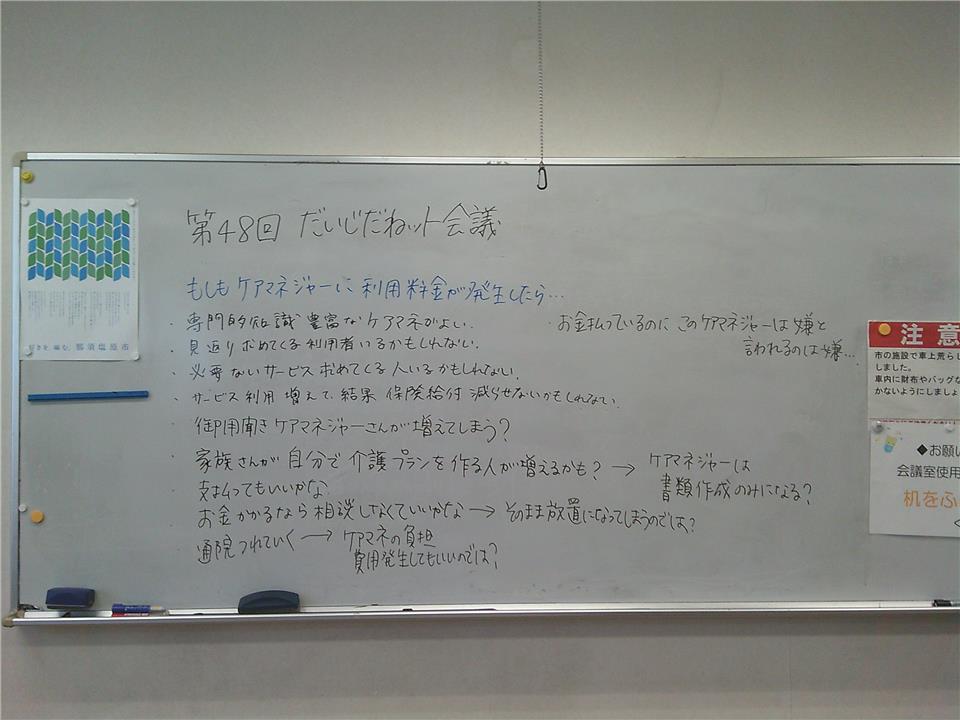 第48回 だいじだねット会議
もしもケアマネジャーに利用料金が発生したら…
・専門的知識豊富なケアマネがよい.
・見返り求めてくる利用者いるかもしれない.
・必要ないサービス求めてくる人いるかもしれない.
・サービス利用増えて、結果保険給付減らせないかもしれない.
・御用聞きケアマネジャーさんが増えてしまう?
・家族さんが自分で介護プランを作る人が増えるかも? → ケアマネジャーは
書類作成のみになる?
・支払ってもいいかな
・お金かかるなら相談しなくていいかな → そのまま放置になってしまうのでは?
・通院つれていく → ケアマネの負担
費用発生してもいいのでは?
・お金払っているのにこのケアマネジャーは嫌と
言われるのは嫌…
那須塩原市
注意
市の施設で車上荒らし
しました。
車内に財布やバッグな
かないようにしましょ
◆お願い
会議室使用
机をふ